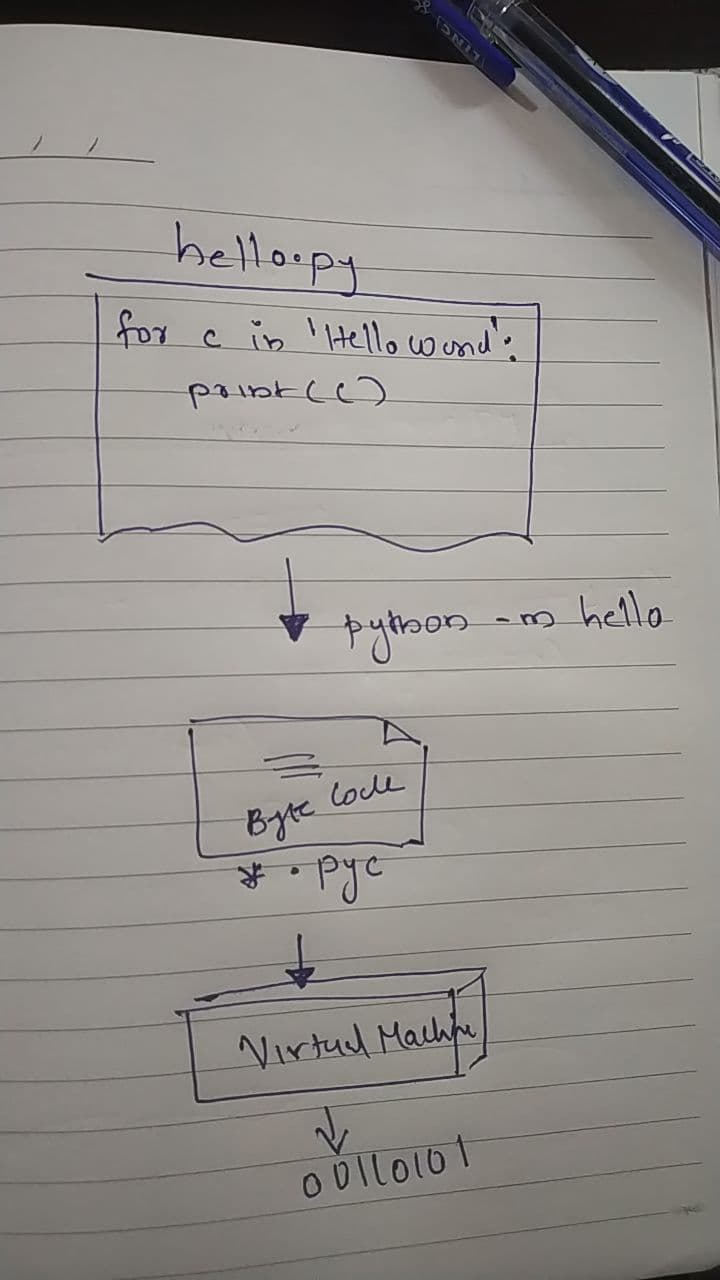 hello.py
for c in 'Hello World':
print(c)
python -m hello
Byte Code
*.pyc
Virtual Machine
00110101